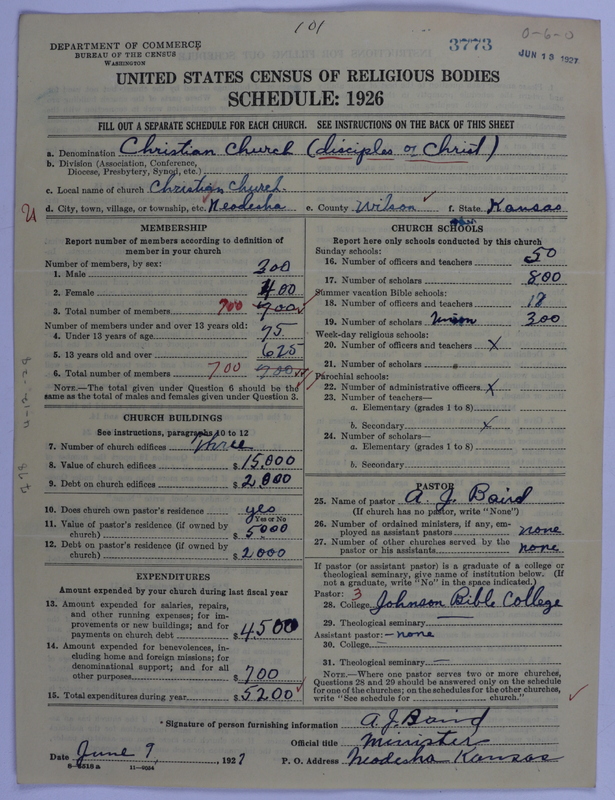 101
3773
0-6-0
JUN 13 1927
DEPARTMENT OF COMMERCE
BUREAU OF THE CENSUS
WASHINGTON
UNITED STATES CENSUS OF RELIGIOUS BODIES
SCHEDULE: 1926
FILL OUT A SEPARATE SCHEDULE FOR EACH CHURCH. SEE INSTRUCTIONS ON THE BACK OF THIS SHEET
a. Denomination Christian Church (disciples of Christ)
b. Division (Association, Conference,
Diocese, Presbytery, Synod, etc.)
c. Local name of church Christian Church.
d. City, town, village, or township, etc. Neodesha e. County Wilson f. State Kansas
MEMBERSHIP
Report number of members according to definition of
member in your church
Number of members, by sex:
1. Male 300
2. Female 400
3. Total number of members 700 700
Number of members under and over 13 years old:
4. Under 13 years of age 75
5. 13 years old and over 625
6. Total number of members 700 700
NOTE.—The total given under Question 6 should be the
same as the total of males and females given under Question 3.
CHURCH BUILDINGS
See instructions, paragraphs 10 to 12
7. Number of church edifices three
8. Value of church edifices $15,000
9. Debt on church edifices $2,800
10. Does church own pastor's residence yes
Yes or No
11. Value of pastor's residence (if owned by
church) $5000
12. Debt on pastor's residence (if owned by
church) $2,000
EXPENDITURES
Amount expended by your church during last fiscal year
13. Amount expended for salaries, repairs,
and other running expenses; for im-
provements or new buildings; and for
payments on church debt $4500
14. Amount expended for benevolences, in-
cluding home and foreign missions; for
denominational support; and for all
other purposes $700
15. Total expenditures during year $5200
CHURCH SCHOOLS
Report here only schools conducted by this church
Sunday schools:
16. Number of officers and teachers 50
17. Number of scholars 800
Summer vacation Bible schools:
18. Number of officers and teachers 18
19. Number of scholars Union 300
Week-day religious schools:
20. Number of officers and teachers X
21. Number of scholars
Parochial schools:
22. Number of administrative officers X
23. Number of teachers—
a. Elementary (grades 1 to 8)
b. Secondary X
24. Number of scholars—
a. Elementary (grades 1 to 8)
b. Secondary
PASTOR
25. Name of pastor A. J. Baird
(If church has no pastor, write "None")
26. Number of ordained ministers, if any, em-
ployed as assistant pastors none
27. Number of other churches served by the
pastor or his assistants none
If pastor (or assistant pastor) is a graduate of a college or
theological seminary, give name of institution below. (If
not a graduate, write "No" in the space indicated.)
Pastor: 3
28. College Johnson Bible College
29. Theological seminary
Assistant pastor: - none
30. College
31. Theological seminary
NOTE.—Where one pastor serves two or more churches,
Questions 28 and 29 should be answered only on the schedule
for one of the churches; on the schedules for the other churches,
write "See schedule for church."
Signature of person furnishing information A. J. Baird
Official title Minister
Date June 9, 1927 P. O. Address Neodesha Kansas
8-2518a 11-9034